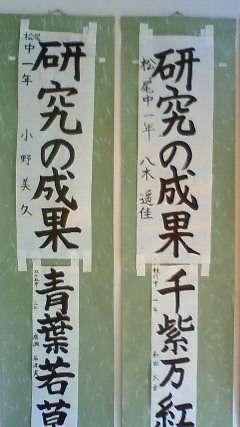 研究の成果
松尾中一年 八木 遥佳
千紫万紅
研究の成果
松尾中一年 小野美久
青葉若草